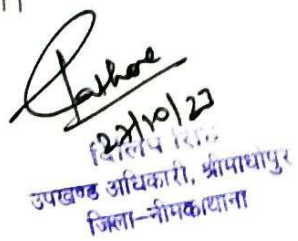 Rathore
27/10/23
दिलीप सिंह
उपखण्ड अधिकारी, श्रीमाधोपुर
जिला-नीमकाथाना